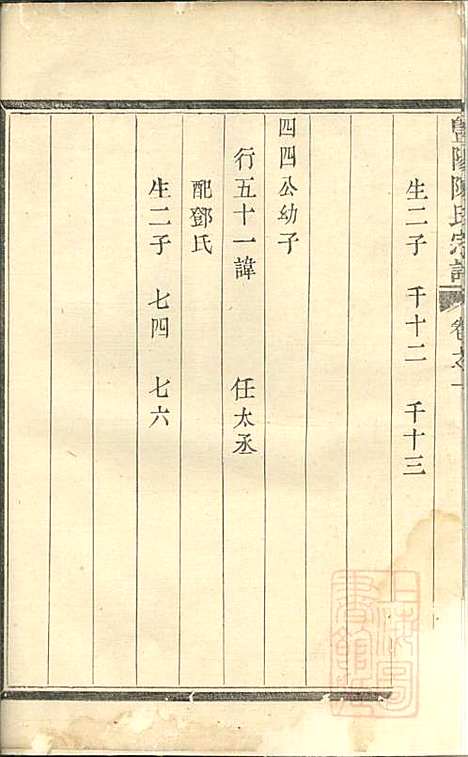 豐陽陳氏宗譜 卷之一
生二子 千十二 千十三
四四公幼子
行五十一諱 任太丞
配鄧氏
生二子 七四 七六
上海圖書館藏